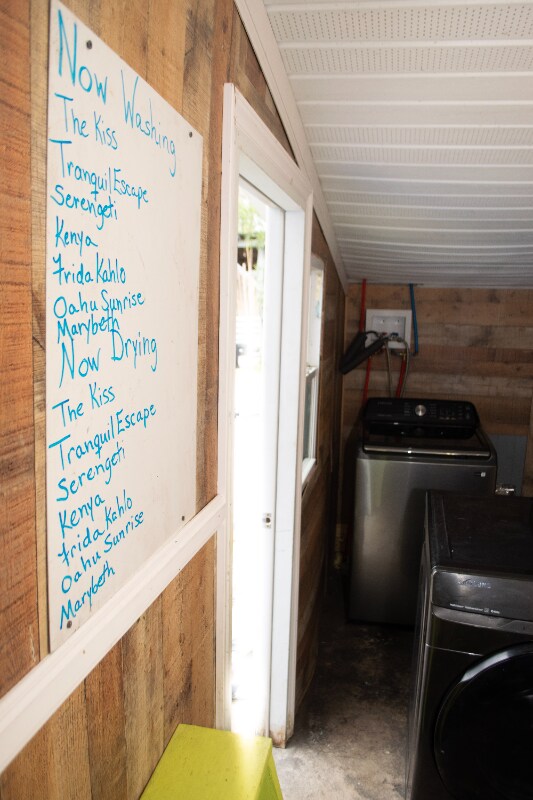 Now Washing
The Kiss
Tranquil Escape
Serengeti
Kenya
Frida Kahlo
Oahu Sunrise
Marybeth
Now Drying
The Kiss
Tranquil Escape
Serengeti
Kenya
Frida Kahlo
Oahu Sunrise
Marybeth